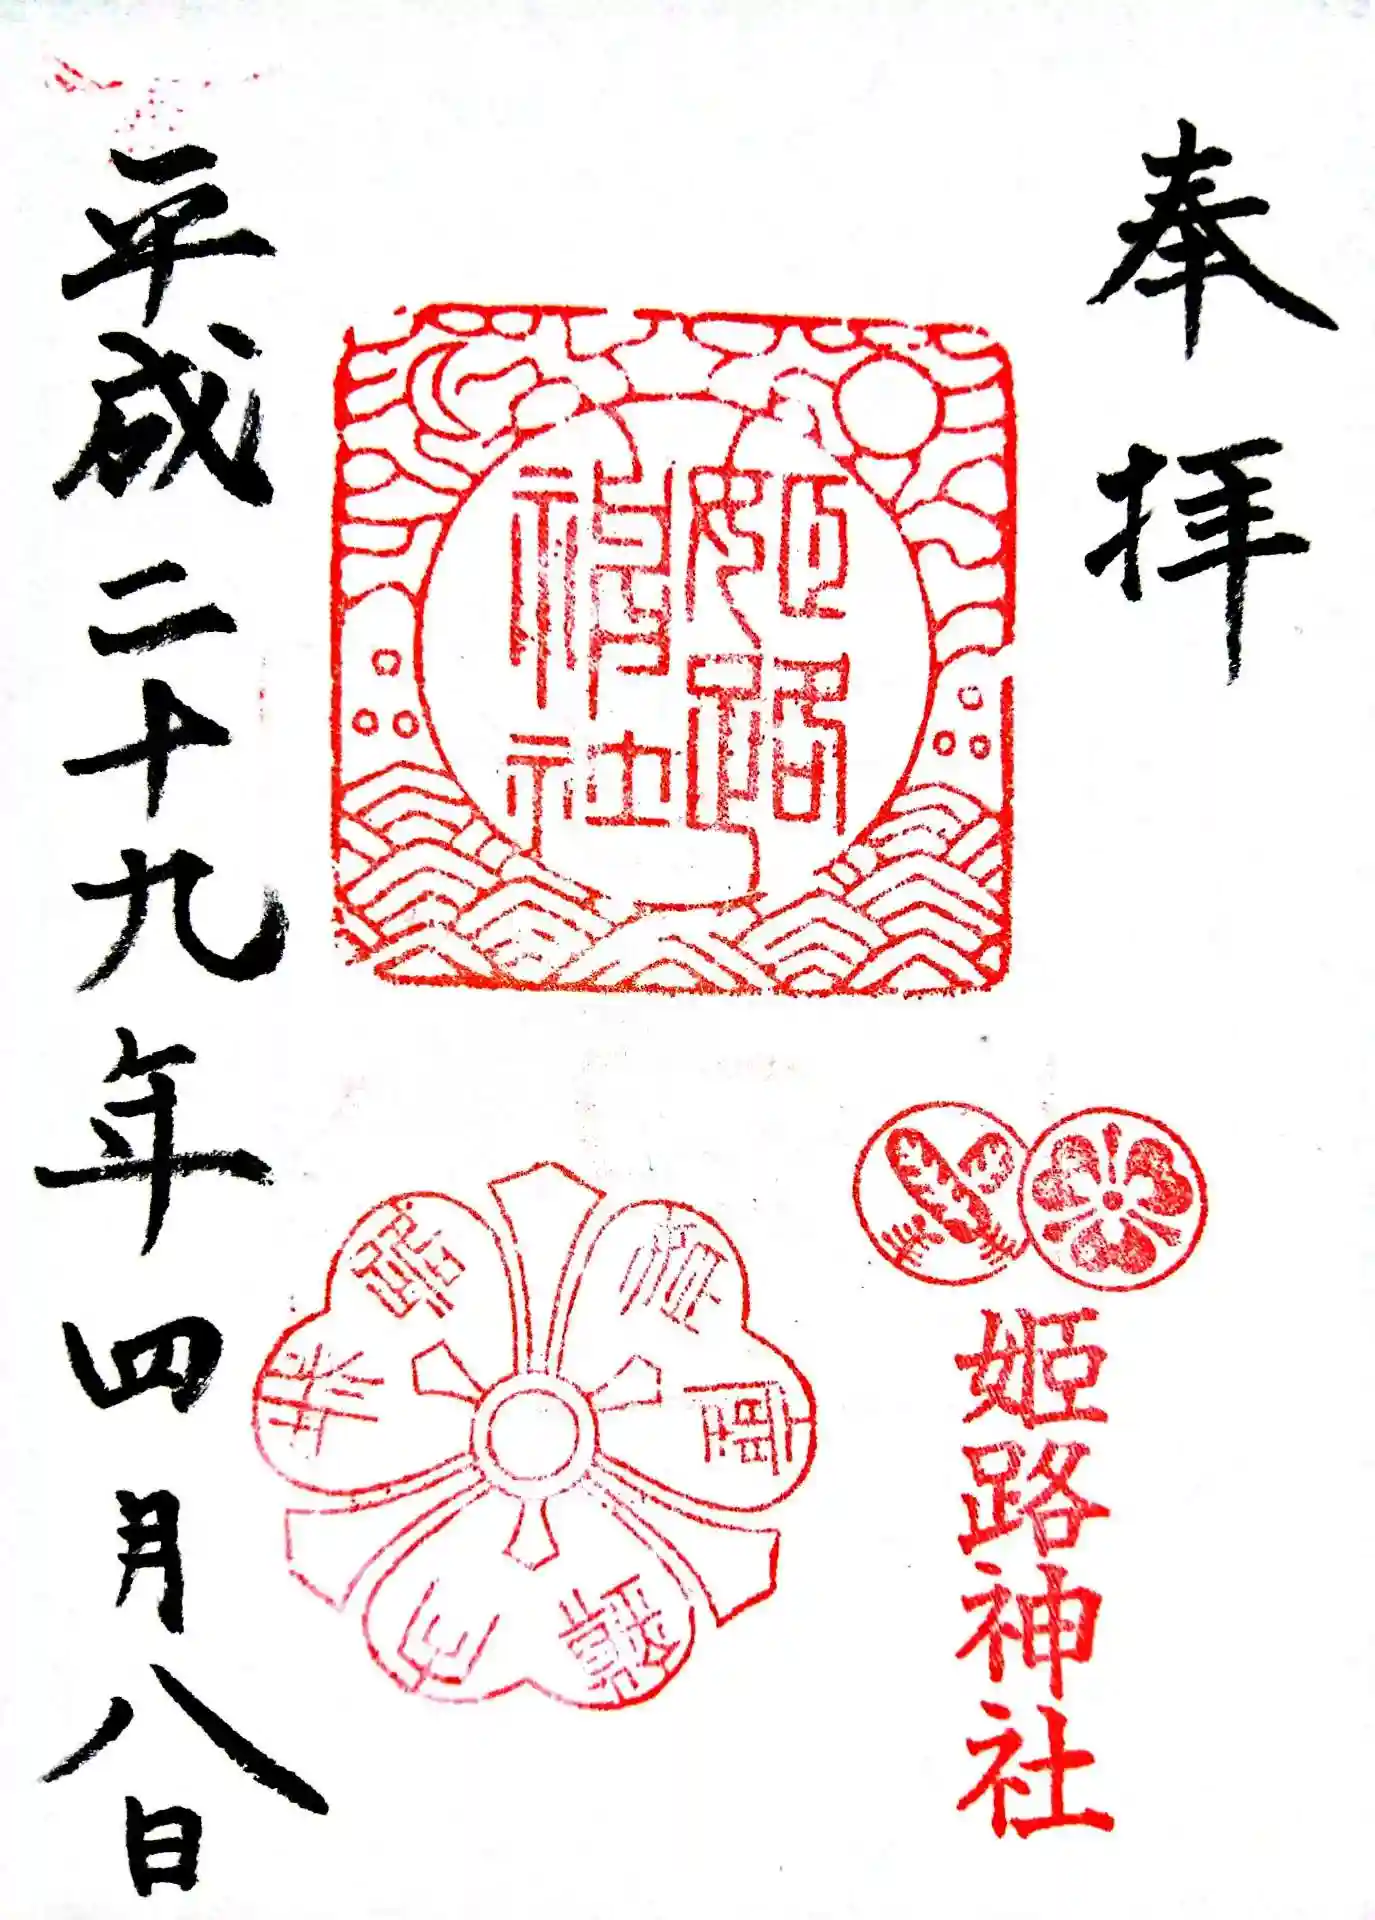 奉拝
姫路神社
姫路神社
平成二十九年四月八日